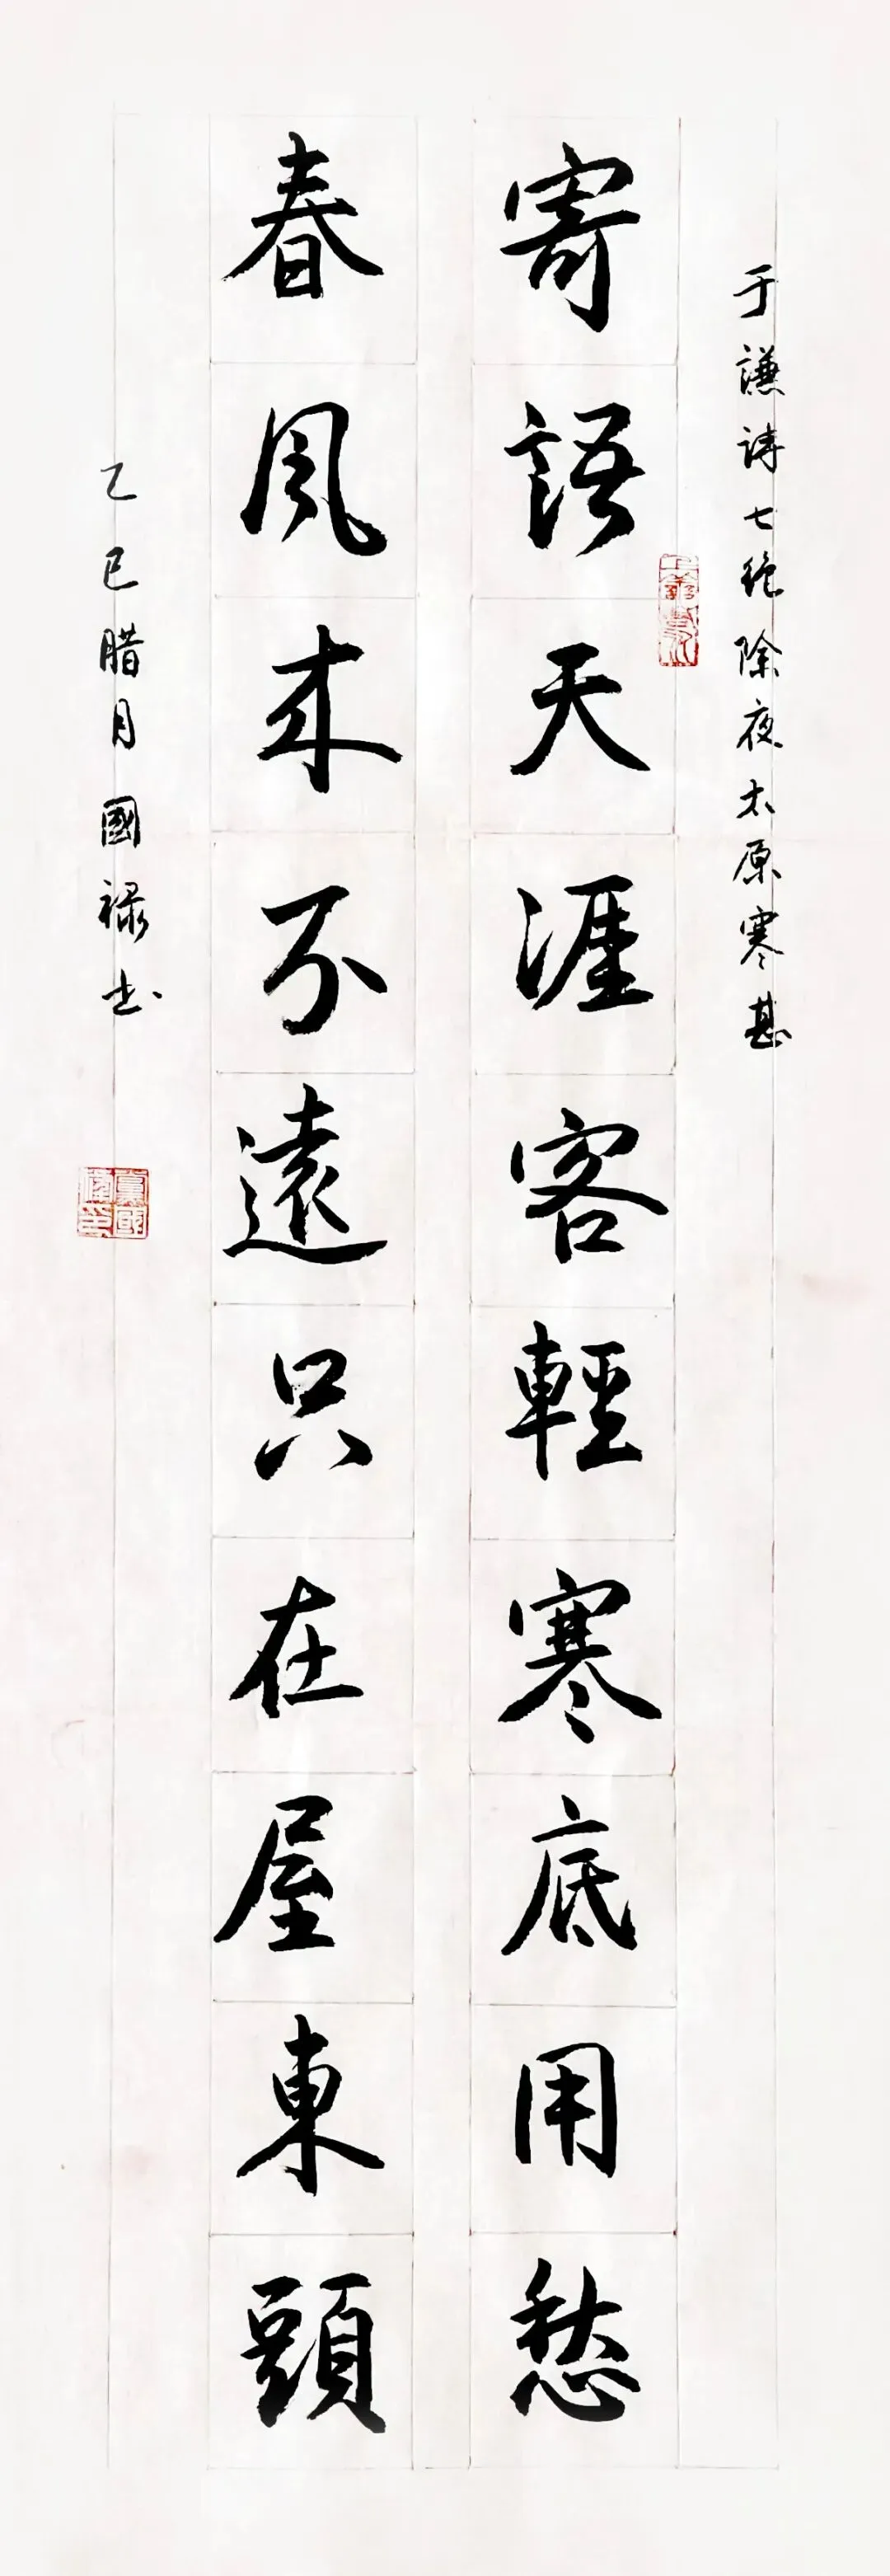 于謙詩七絕除夜太原寒甚
寄語天涯客輕寒底用愁
春風来不遠只在屋東頭
乙巳腊月國祿书